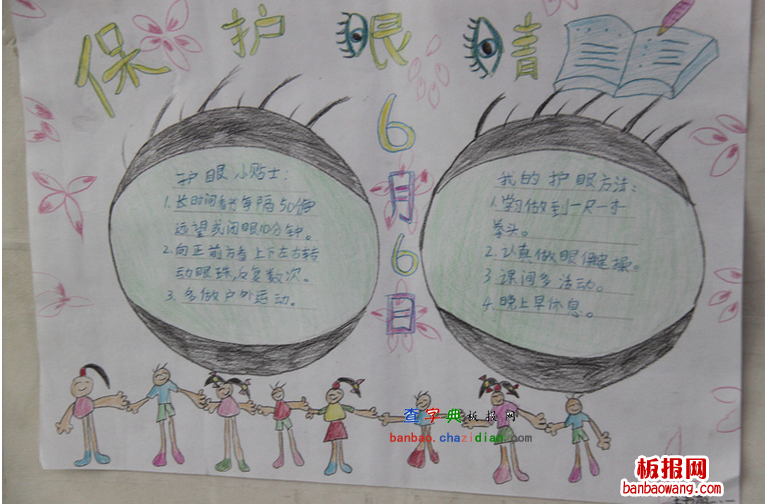 保护眼睛
6月6日
护眼小贴士:
1.长时间看书每隔50分钟
远望或闭眼10分钟。
2.向正前方看上下左右转
动眼珠,反复数次。
3.多做户外运动。
我的护眼方法:
做到一尺一寸一
拳头。
2.认真做眼保健操。
3.课间多活动。
4.晚上早休息。
查字典板报网
banbao.chazidian.com
板报网
banbaowang.com